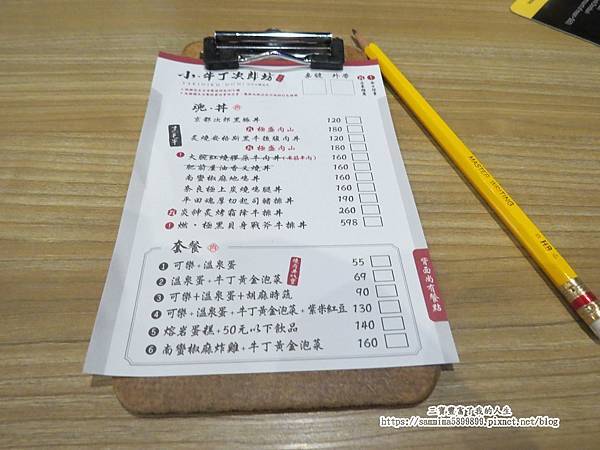 小・牛丁次郎坊
桌號 外帶
魂・丼
京都次郎黑豚丼 120
極盛肉山 180
炙燒安格斯黑牛機腹肉丼 120
極盛肉山 180
大腕紅燒膠原牛肉丼 160
肥前醬油香叉燒丼 160
南蠻椒麻地鳴丼 160
奈良極上炭燒鳴腿丼 160
平田魂厚切起司豬排丼 190
炎神炙烤霜降牛排丼 260
燃・極黑貝身戰斧牛排丼 598
套餐
1 可樂+溫泉蛋 55
2 溫泉蛋+牛丁黃金泡菜 69
3 可樂+溫泉蛋+胡麻時蔬 90
4 可樂+溫泉蛋+牛丁黃金泡菜+紫米紅豆 130
5 熔岩蛋糕+50元以下飲品 140
6 南蠻椒麻炸雞+牛丁黃金泡菜 160
背面尚有餐點
MASTER WRITING
HB
三寶豐富了我的人生
https://sammima5899899.pixnet.net/blog